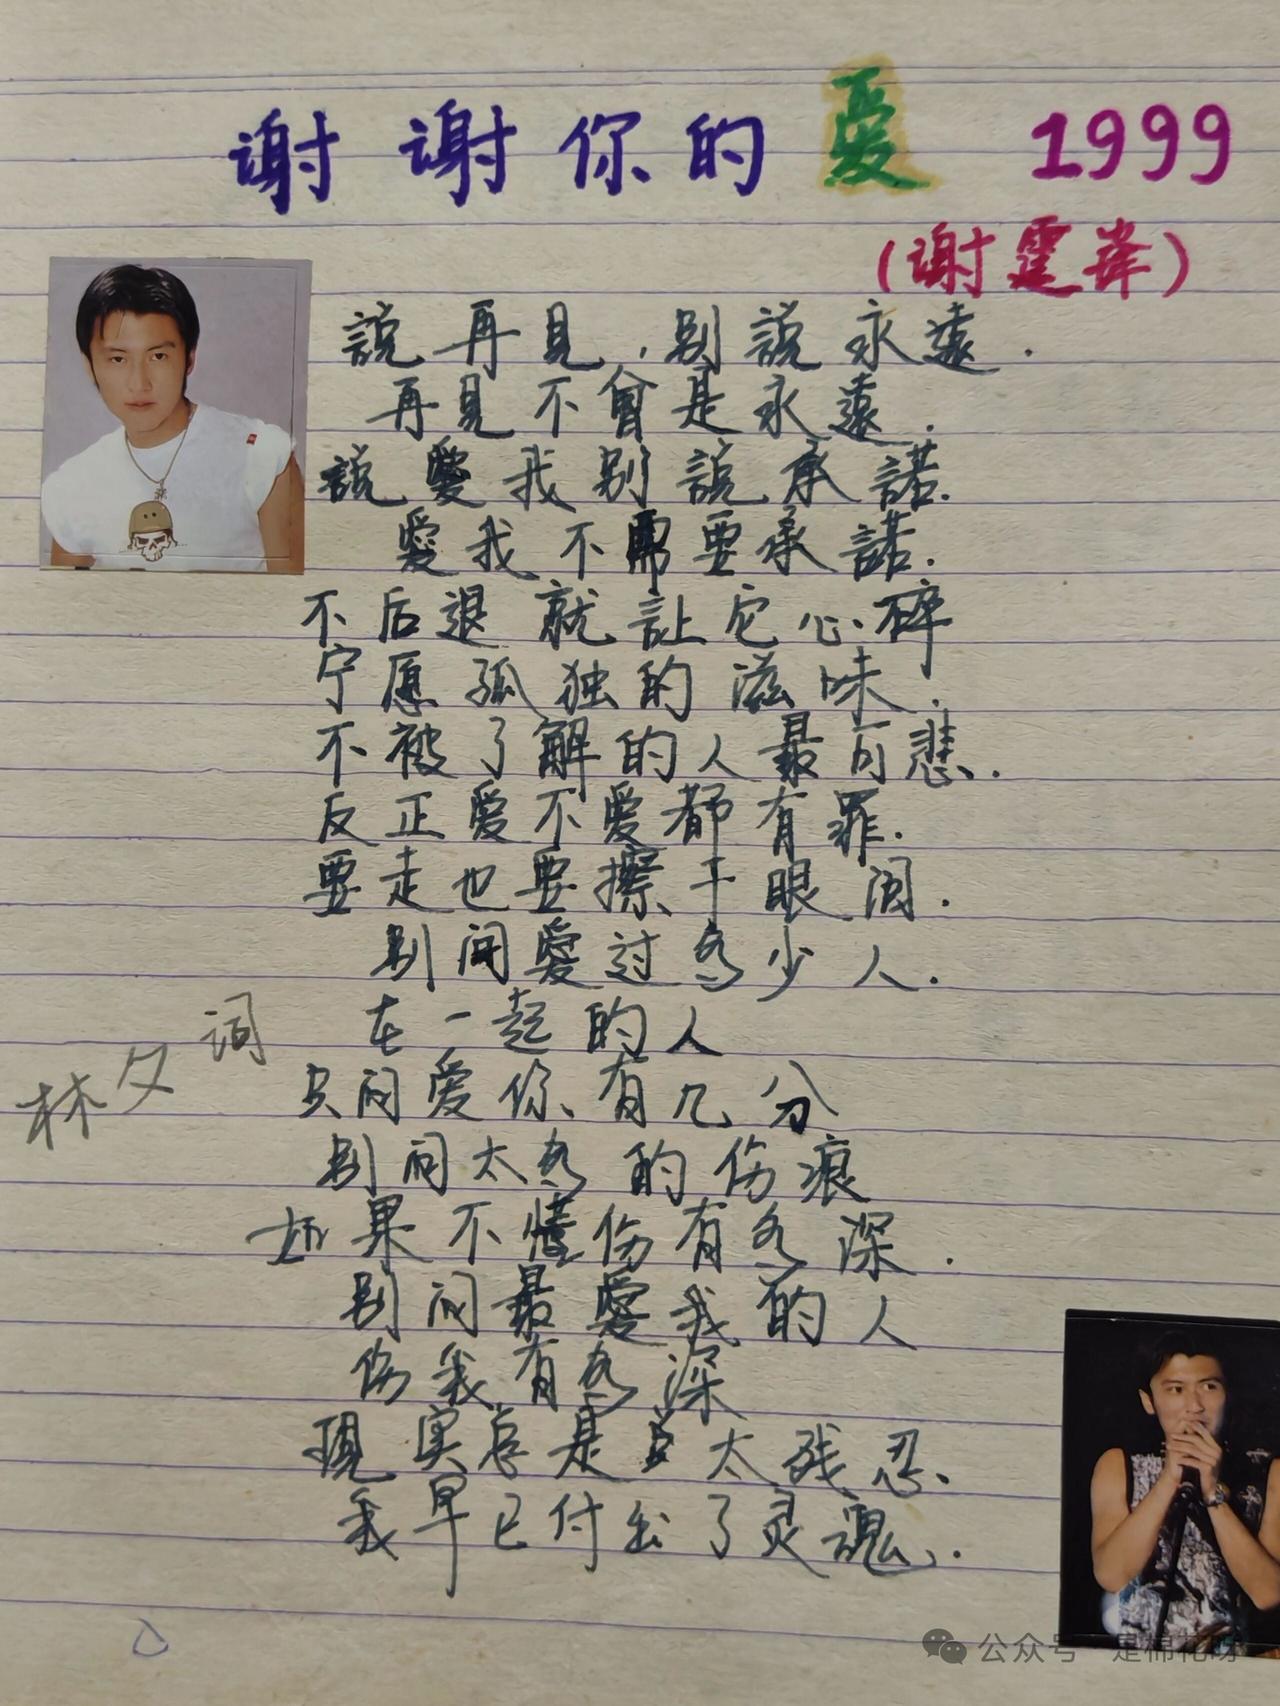 谢谢你的爱 1999
(谢霆峰)
說再見,别說永遠.
再見不曾是永遠.
說愛我别說承諾.
愛我不需要承諾.
不后退就讓它心碎
宁愿孤独的滋味.
不被了解的人最可悲.
反正愛不愛都有罪.
要走也要擦干眼泪.
别问愛过多少人.
在一起的人
只问愛你有几分
别问太多的伤痕
如果不懂伤有多深.
别问最愛我的人
伤我有多深
現实总是太残忍.
我早已付出了灵魂.
林夕词
公众号·是棉花呀